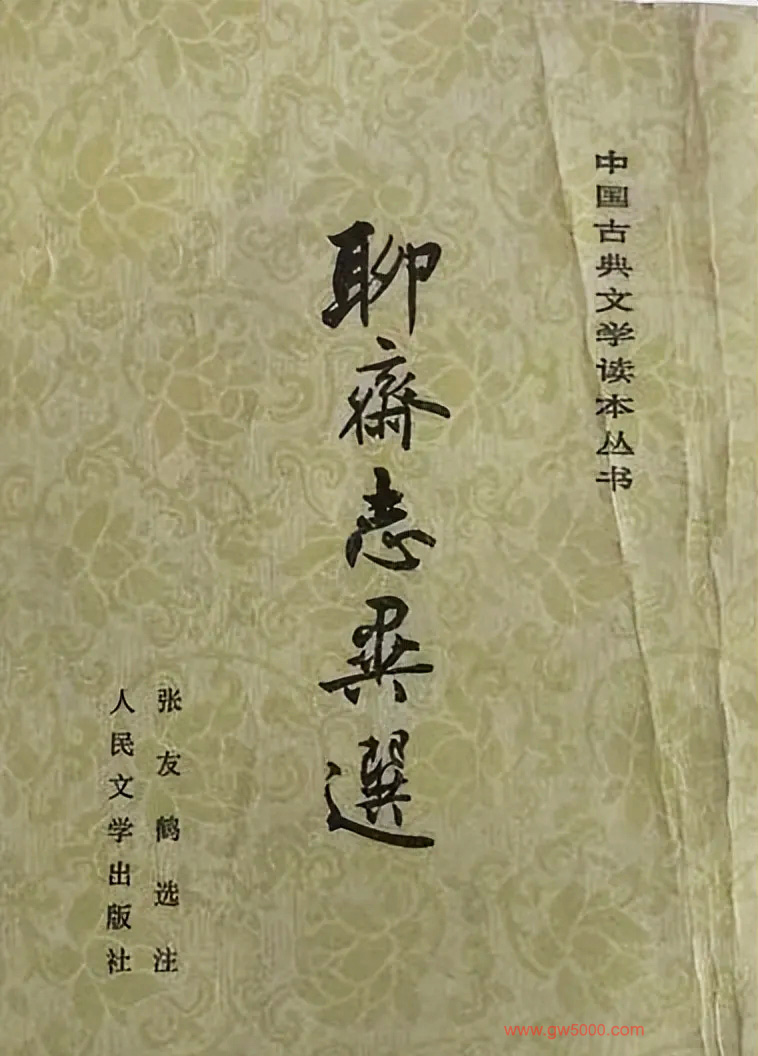 中国古典文学读本丛书
聊齋志異選
张友鹤选注
人民文学出版社
www.gw5000.com